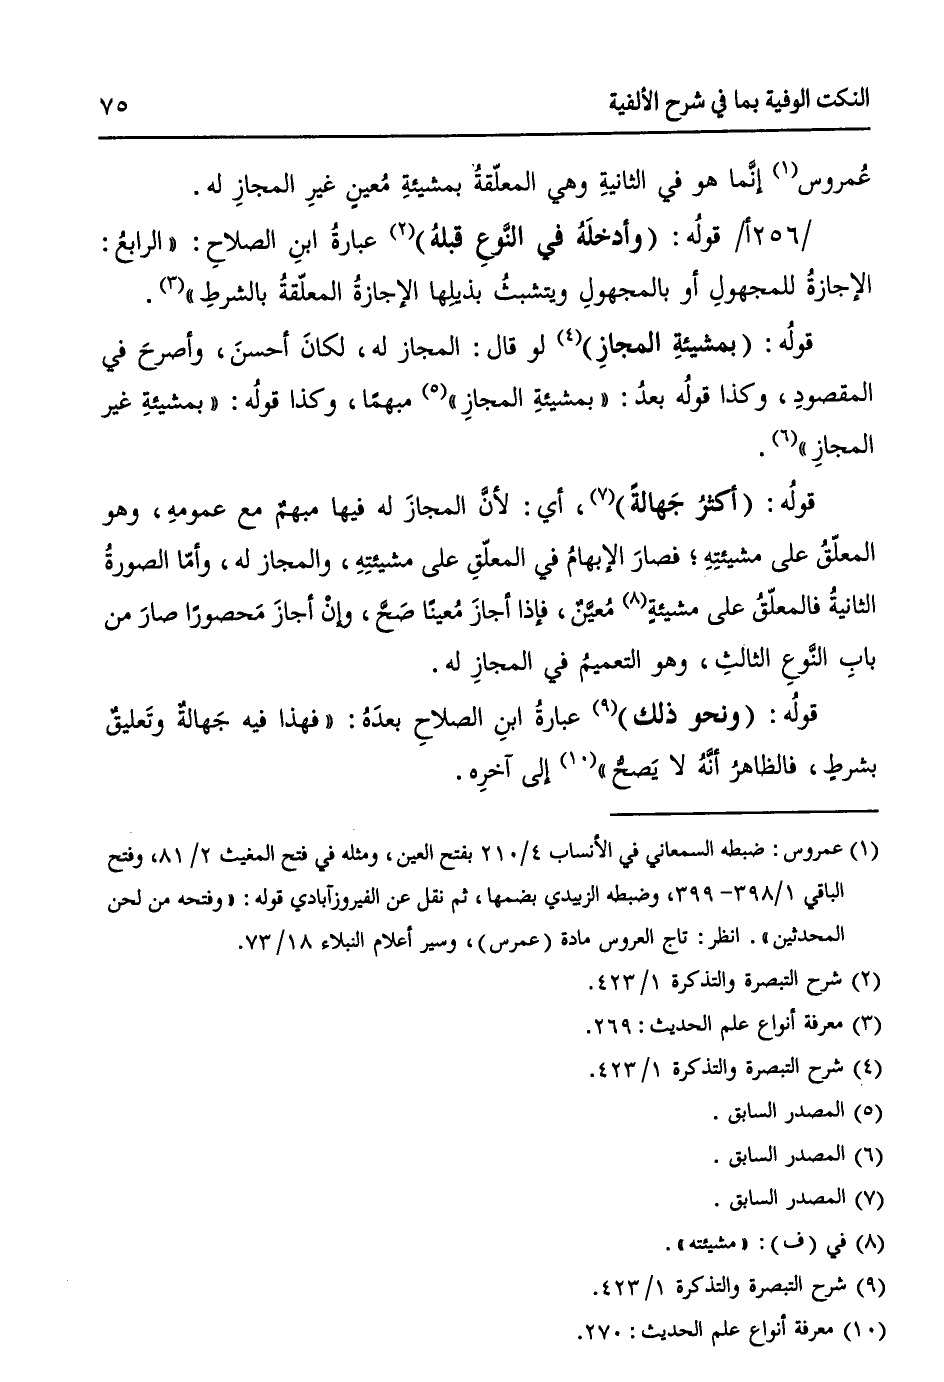 النكت الوفية بما في شرح الألفية ٧٥
عُمروس(١) إنَّما هو في الثانيةِ وهي المعلّقةُ بمشيئةِ مُعينٍ غيرِ المجازِ له .
/٢٥٦أ/ قولُه : (وأدخلَهُ في النَّوعِ قبلهُ)(٢) عبارةُ ابنِ الصلاحِ : «الرابعُ :
الإجازةُ للمجهولِ أو بالمجهولِ ويتشبثُ بذيلِها الإجازةُ المعلّقةُ بالشرطِ»(٣) .
قولُه : (بمشيئةِ المجازِ)(٤) لو قال : المجاز له ، لكانَ أحسنَ ، وأصرحَ في
المقصودِ ، وكذا قولُه بعدُ : «بمشيئةِ المجازِ»(٥) مبهمًا ، وكذا قولُه : «بمشيئةِ غير
المجازِ»(٦) .
قولُه : (أكثرُ جَهالةً)(٧) ، أي : لأنَّ المجازَ له فيها مبهمٌ مع عمومهِ ، وهو
المعلّقُ على مشيئتِهِ ؛ فصارَ الإبهامُ في المعلّقِ على مشيئتِهِ ، والمجاز له ، وأمّا الصورةُ
الثانيةُ فالمعلّقُ على مشيئةٍ(٨) مُعيَّنٌ ، فإذا أجازَ مُعينًا صَحَّ ، وإنْ أجازَ مَحصورًا صارَ من
بابِ النَّوعِ الثالثِ ، وهو التعميمُ في المجازِ له .
قولُه : (ونحو ذلك)(٩) عبارةُ ابنِ الصلاحِ بعدَهُ : «فهذا فيه جَهالةٌ وتَعليقٌ
بشرطٍ ، فالظاهرُ أنَّهُ لا يَصحُّ»(١٠) إلى آخرِه .
(١) عمروس : ضبطه السمعاني في الأنساب ٤/ ٢١٠ بفتح العين ، ومثله في فتح المغيث ٢/ ٨١، وفتح
الباقي ١/ ٣٩٨- ٣٩٩، وضبطه الزبيدي بضمها ، ثم نقل عن الفيروزآبادي قوله : «وفتحه من لحن
المحدثين» . انظر : تاج العروس مادة (عمرس) ، وسير أعلام النبلاء ١٨/ ٧٣.
(٢) شرح التبصرة والتذكرة ١/ ٤٢٣.
(٣) معرفة أنواع علم الحديث : ٢٦٩.
(٤) شرح التبصرة والتذكرة ١/ ٤٢٣.
(٥) المصدر السابق .
(٦) المصدر السابق .
(٧) المصدر السابق .
(٨) في (ف) : «مشيئته» .
(٩) شرح التبصرة والتذكرة ١/ ٤٢٣.
(١٠) معرفة أنواع علم الحديث : ٢٧٠.